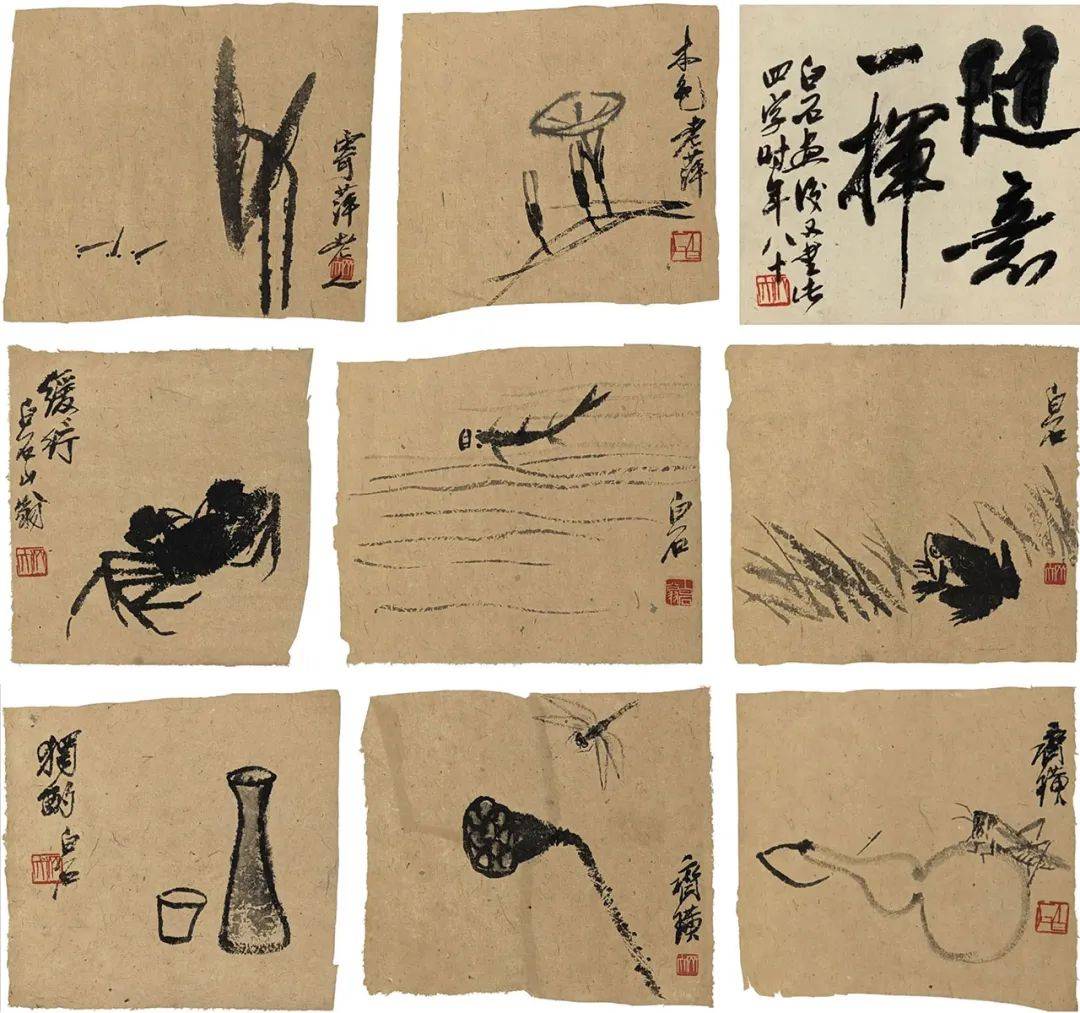 寄萍老人
本色老萍
隨意
一揮
白石画後又書此
四字时年八十
緩行
白石山翁
白石
白石
獨酌
白石
齊璜
齊璜